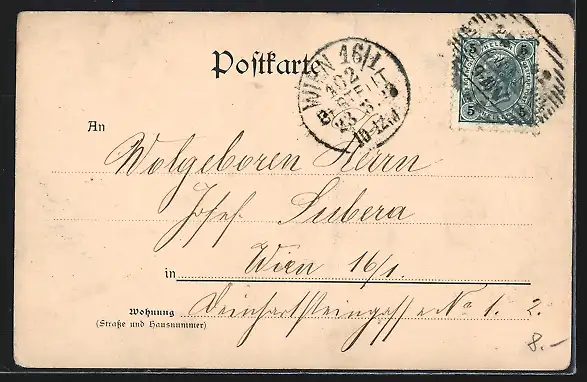 Postkarte
WIEN 16/1
102
BESTELLT
23.3.
10-12.V
5 5
5 5
An
Wolgeboren Herrn
Josef Subera
in Wien 16/1.
Wohnung Deinhartsteingasse No 1. 2.
(Straße und Hausnummer)
8.-